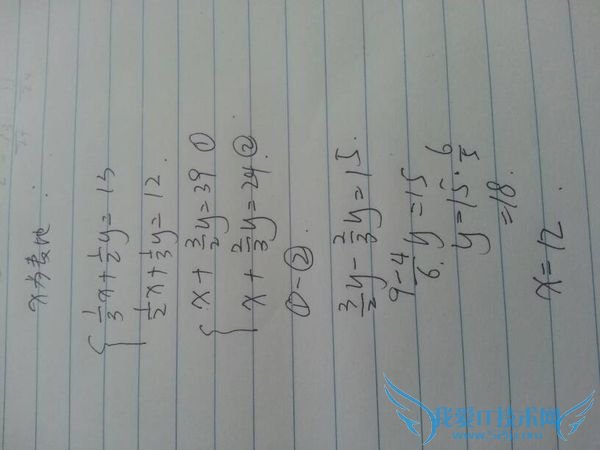 x为麦地.
1/3x+1/2y=13
1/2x+1/3y=12.
x+3/2y=39 ①
x+2/3y=24 ②
①-②
3/2y-2/3y=15.
9-4/6.y=15
y=15.6/5
=18.
x=12.
我爱IT技术网